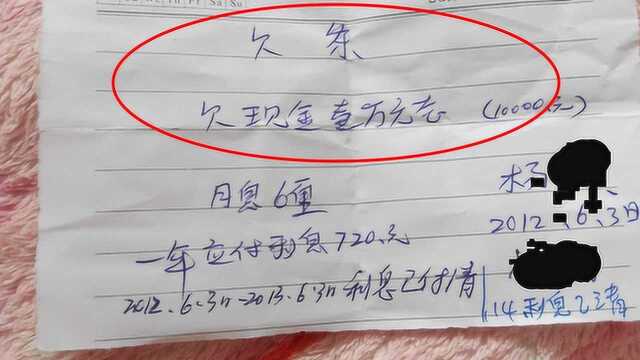 Mo Tu We Th Fr Sa Su
欠条
欠现金壹万元志 (10000.元)
月息6厘
杨
2012.6.3日
一年应付利息720.元
2012.6.3日-2013.6.3日利息已付清
14利息已清